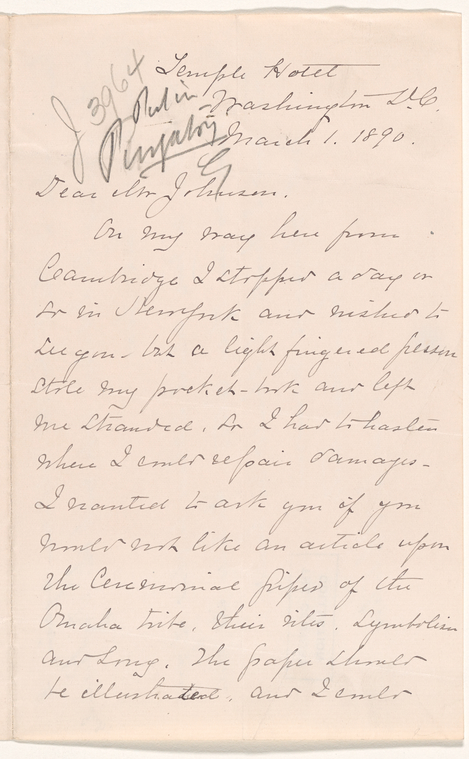 J 3964
Put in
Purgatory
G
Temple Hotel
Washington D.C.
March 1. 1890.
Dear Mr Johnson.
On my way here from
Cambridge I stopped a day or
so in New York and wished to
see you - but a light fingered person
stole my pocket-book and left
me stranded. So I had to hasten
where I could repair damages -
I wanted to ask you if you
would not like an article upon
the Ceremonial Pipes of the
Omaha tribe, their rites, symbolism
and song. The paper should
be illustrated, and I could